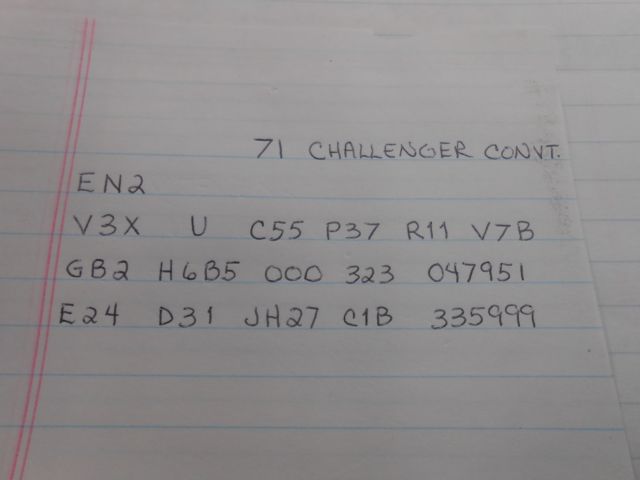 71 CHALLENGER CONVT.
EN2
V3X U C55 P37 R11 V7B
GB2 H6B5 000 323 047951
E24 D31 JH27 C1B 335999